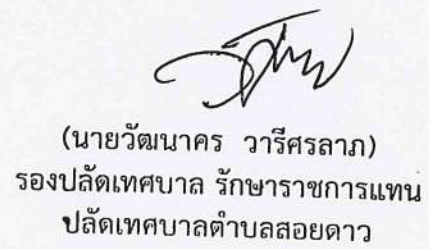 (นายวัฒนาคร วารีศรลาภ)
รองปลัดเทศบาล รักษาราชการแทน
ปลัดเทศบาลตำบลสอยดาว